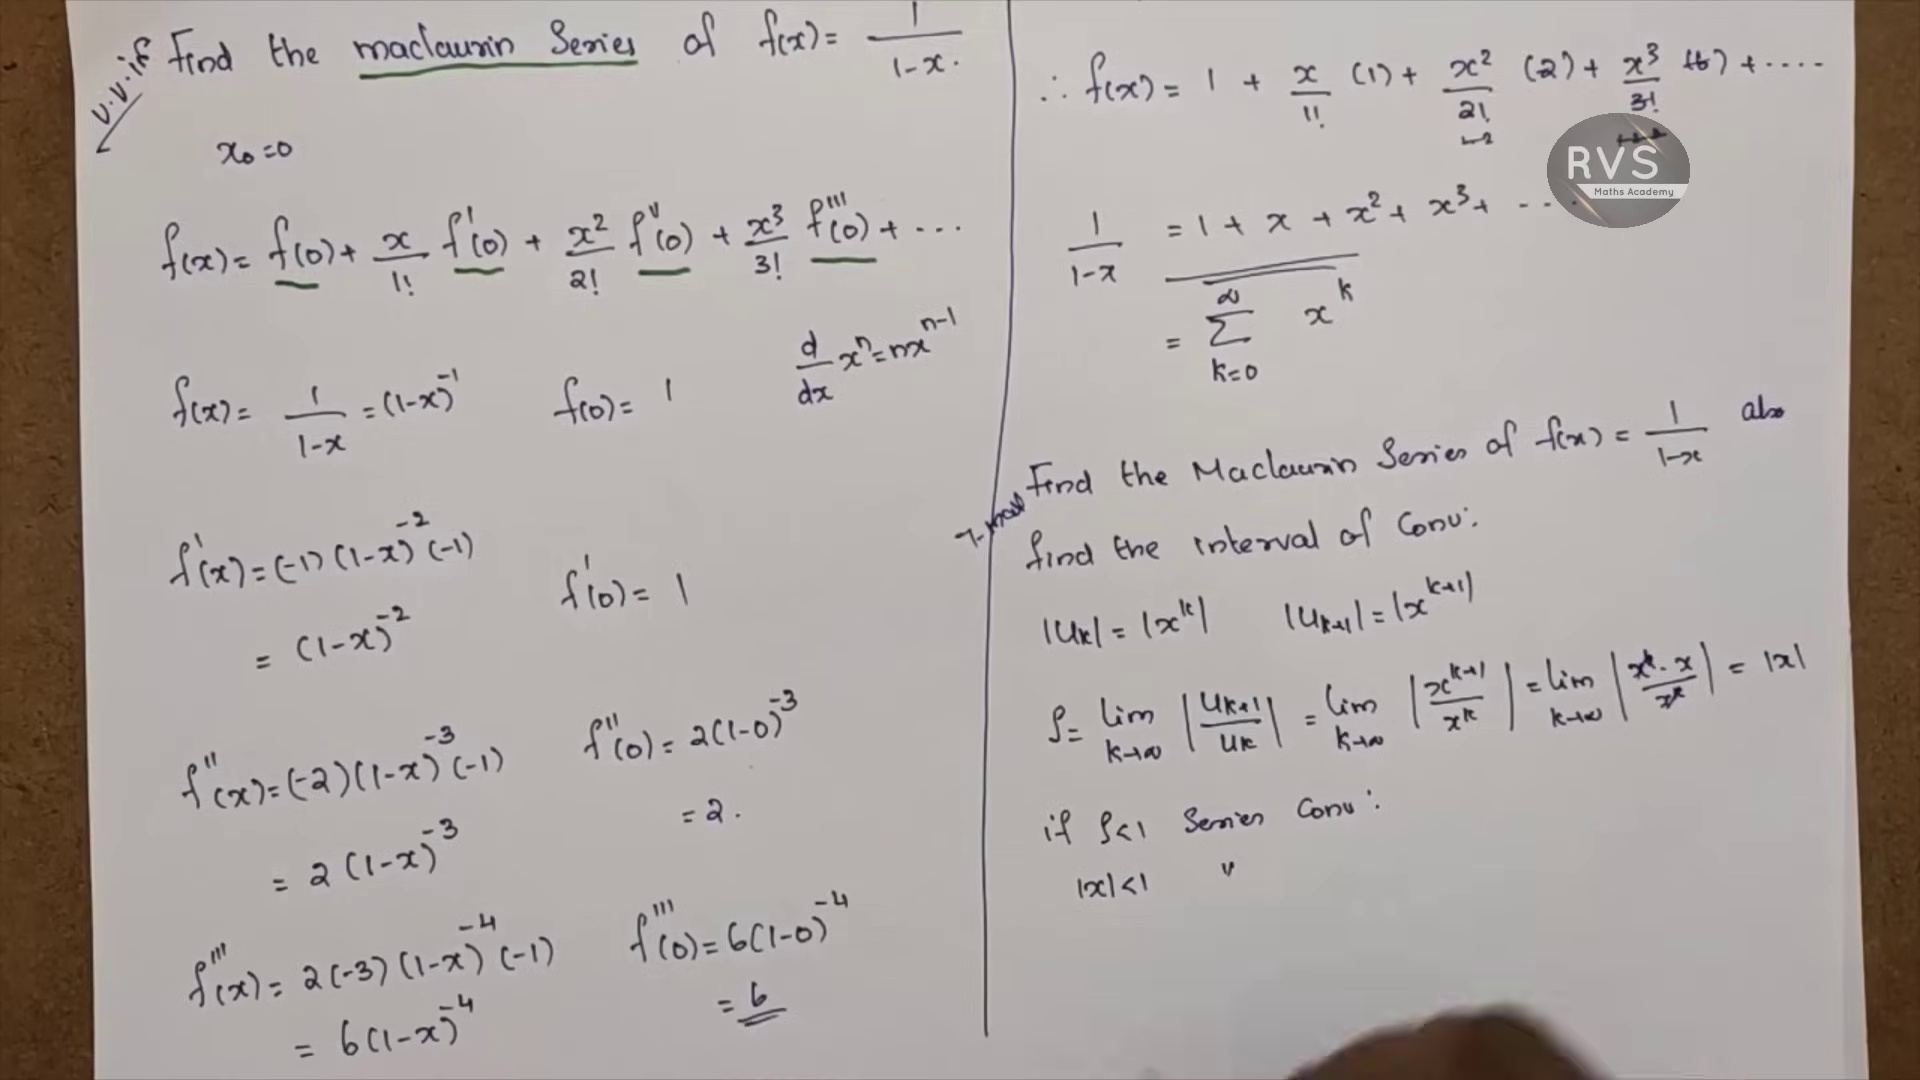 v.v.if Find the maclaurin Series of f(x) = 1/(1-x).
x₀ = 0
f(x) = f(0) + x/1! f'(0) + x²/2! f''(0) + x³/3! f'''(0) + ...
f(x) = 1/(1-x) = (1-x)⁻¹ f(0) = 1 d/dx xⁿ = nxⁿ⁻¹
f'(x) = (-1)(1-x)⁻²(-1) f'(0) = 1
= (1-x)⁻²
f''(x) = (-2)(1-x)⁻³(-1) f''(0) = 2(1-0)⁻³
= 2(1-x)⁻³ = 2.
f'''(x) = 2(-3)(1-x)⁻⁴(-1) f'''(0) = 6(1-0)⁻⁴
= 6(1-x)⁻⁴ = 6
∴ f(x) = 1 + x/1! (1) + x²/2! (2) + x³/3! (6) + ....
RVS
Maths Academy
1/(1-x) = 1 + x + x² + x³ + ...
= ∑ₖ₌₀^∞ xᵏ
Find the Maclaurin Series of f(x) = 1/(1-x) also
find the interval of Conv:
|uₖ| = |xᵏ| |uₖ₊₁| = |xᵏ⁺¹|
ρ = lim k→∞ |uₖ₊₁/uₖ| = lim k→∞ |xᵏ⁺¹/xᵏ| = lim k→∞ |xᵏ·x/xᵏ| = |x|
if ρ<1 Series Conv:
|x|<1 "